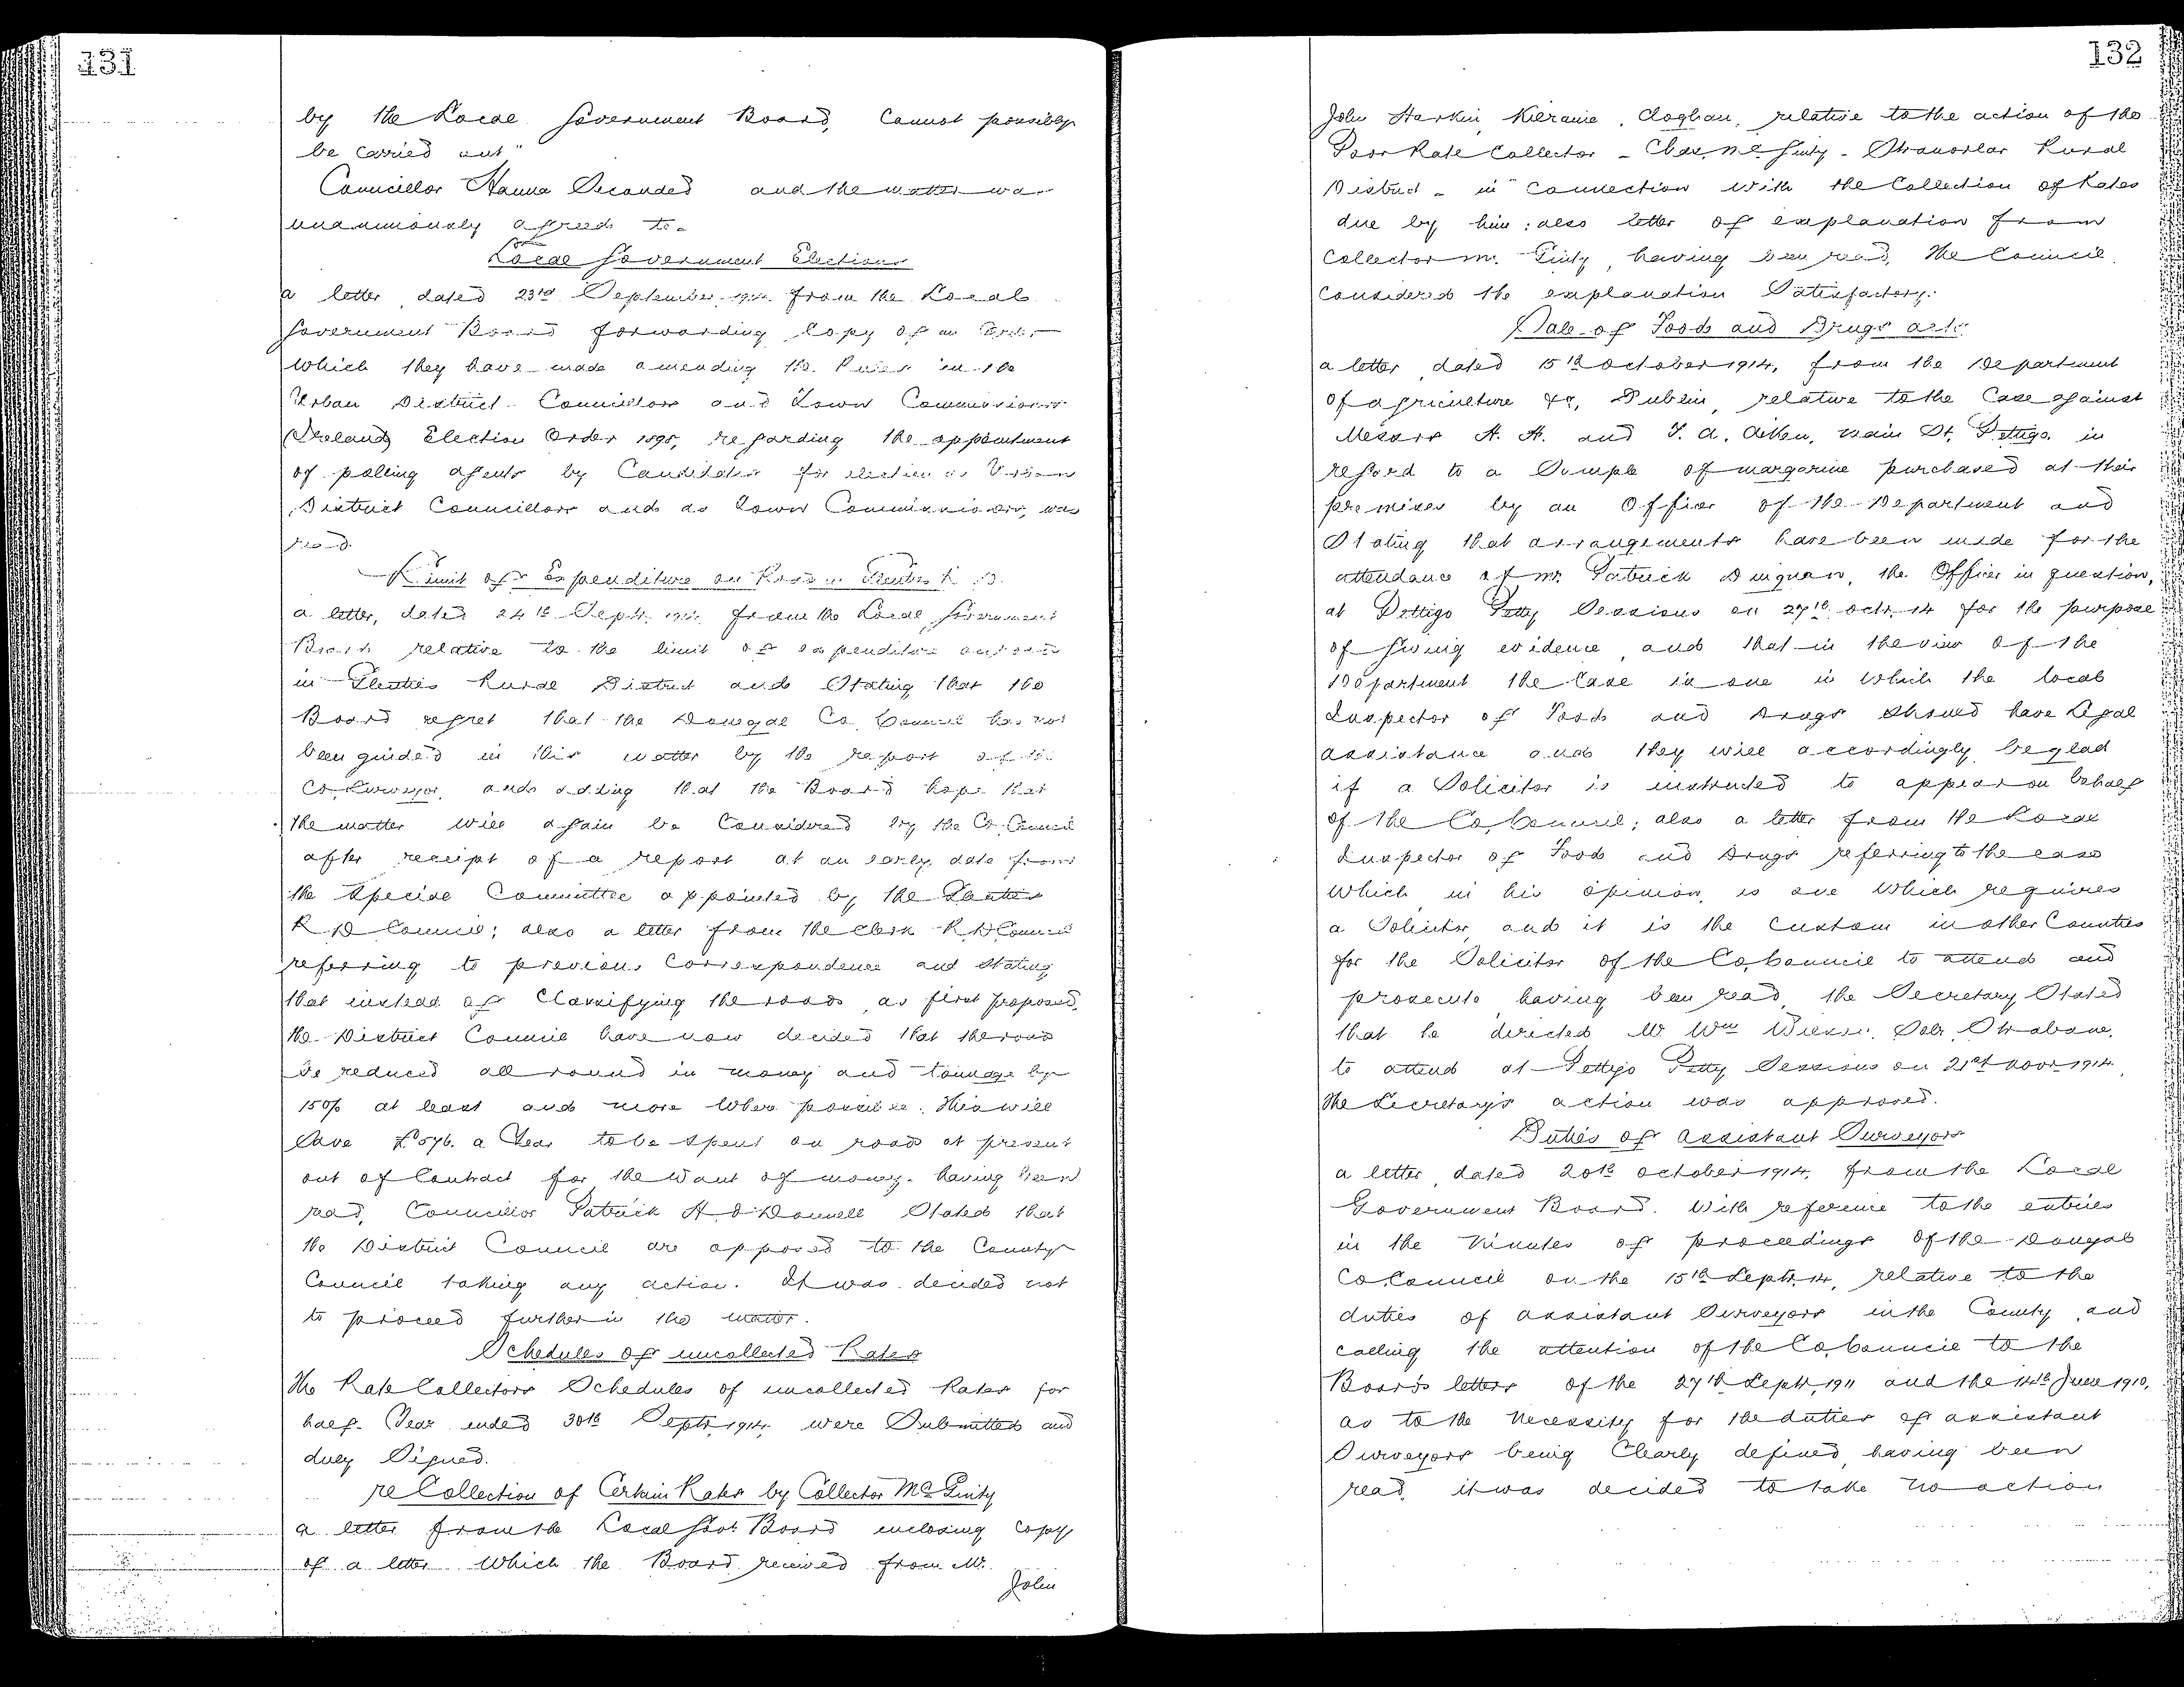 131
by the Local Government Board, Cannot possibly
be Carried out"
Councillor Hanna Seconded and the matter was
unanimously agreed to.
Local Government Elections
a letter dated 23rd September 1914 from the Local
Government Board forwarding Copy of an Order
which they have made amending the Rules in the
Urban District Councillors and Town Commissioners
(Ireland) Election Order 1898, regarding the appointment
of polling agents by Candidates for election as Urban
District Councillors and as Town Commissioners, was
read.
Limit of Expenditure on Roads in Glenties R.D.
a letter, dated 24th Sept. 1914 from the Local Government
Board relative to the limit of expenditure on roads
in Glenties Rural District and Stating that the
Board regret that the Donegal Co. Council has not
been guided in this matter by the report of the
Co. Surveyor, and adding that the Board hope that
the matter will again be Considered by the Co. Council
after receipt of a report at an early date from
the Special Committee appointed by the Glenties
R D Council; also a letter from the Clerk R.D Council
referring to previous Correspondence and Stating
that instead of Classifying the roads as first proposed,
the District Council have now decided that the roads
be reduced all round in money and tonnage by
15% at least and more where possible. This will
Save £576. a Year to be spent on roads at present
out of Contract for the want of money. having been
read, Councillor Patrick H O'Donnell Stated that
the District Council are opposed to the County
Council taking any action. It was decided not
to proceed further in the matter.
Schedules of uncollected Rates
The Rate Collectors Schedules of uncollected Rates for
half-Year ended 30th Septr. 1914, were Submitted and
duly Signed.
re Collection of Certain Rates by Collector McGinty
a letter from the Local Govt Board enclosing Copy
of a letter which the Board received from Mr.
John
132
John Harkin, Cloghan, relative to the action of the
Poor Rate Collector - Chas. McGinty - Stranorlar Rural
District - in Connection with the Collection of Rates
due by him; also letter of explanation from
Collector Mc Ginty, having been read, The Council
Considered the explanation Satisfactory.
Sale of Foods and Drugs acts.
a letter dated 15th October 1914, from the Department
of agriculture &c, Dublin, relative to the Case against
Messrs A. A. and J. A. Aiken, Main St, Pettigo, in
regard to a Sample of margarine purchased at their
premises by an Officer of the Department and
Stating that arrangements have been made for the
attendance of Mr. Patrick Duignan, the Officer in question,
at Pettigo Petty Sessions on 27th octr. 14 for the purpose
of Giving evidence, and that in the view of the
Department the Case is one in which the local
Inspector of Foods and Drugs Should have Legal
assistance and they will accordingly be glad
if a Solicitor is instructed to appear on behalf
of the Co. Council; also a letter from the Local
Inspector of Food and Drugs referring to the case
which in his opinion, is one which requires
a Solicitor, and it is the Custom in other Counties
for the Solicitor of the Co. Council to attend and
prosecute, having been read, the Secretary Stated
that he directed Mr Wm Wilson, Solr. Strabane,
to attend at Pettigo Petty Sessions on 21st Novr 1914
The Secretary's action was approved.
Duties of assistant Surveyors
a letter dated 20th October 1914, from the Local
Government Board. With reference to the entries
in the Minutes of proceedings of the Donegal
Co Council on the 15th Septr. 14, relative to the
duties of assistant Surveyors in the County, and
calling the attention of the Co. Council to the
Boards letters of the 27th Septr, 1911 and the 14th June 1910,
as to the necessity for the duties of assistant
Surveyors being Clearly defined, having been
read, it was decided to take no action